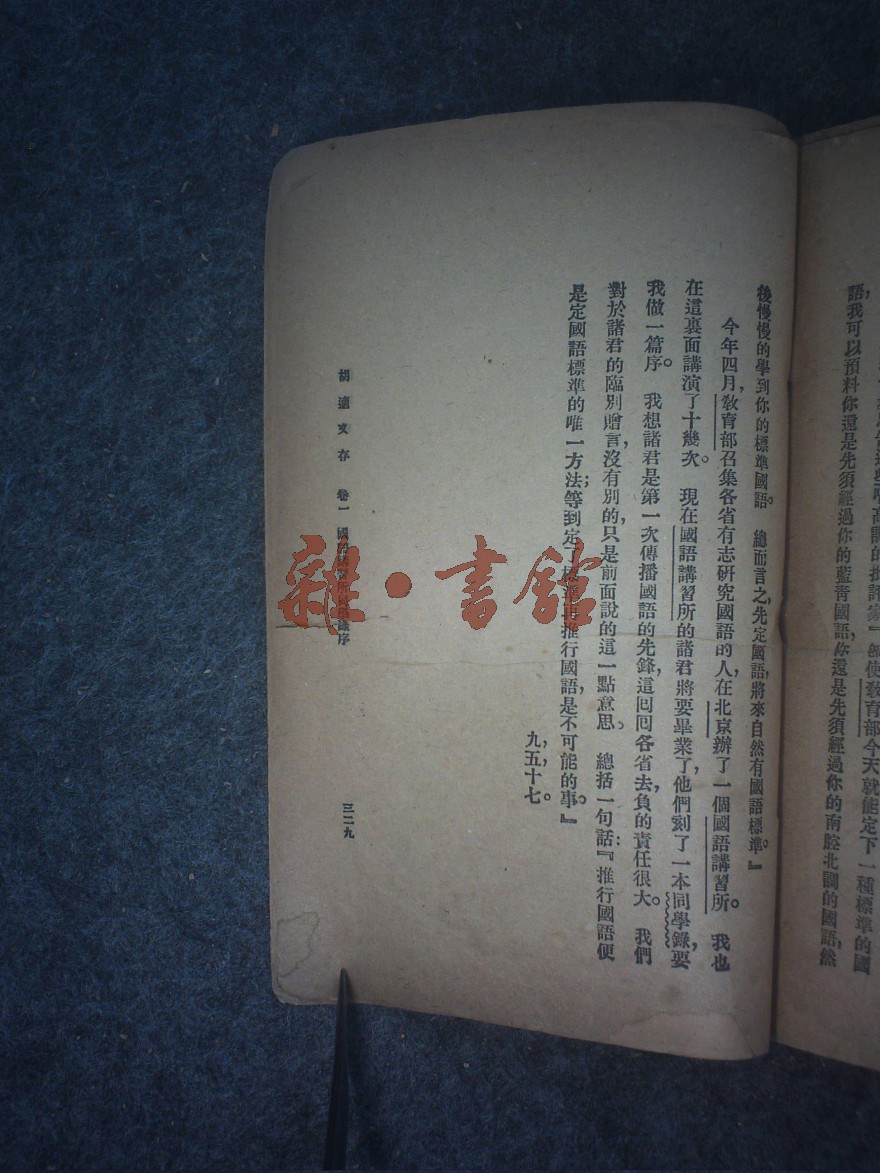 使教育部今天就能定下一種標準的國
語，我可以預料你還是先須經過你的藍青國語，你還是先須經過你的南腔北調的國語，然
後慢慢的學到你的標準國語。　總而言之，先定國語，將來自然有國語標準。』
今年四月，教育部召集各省有志研究國語的人，在北京辦了一個國語講習所。　我也
在這裏面講演了十幾次。　現在國語講習所的諸君將要畢業了，他們刻了一本同學錄，要
我做一篇序。　我想諸君是第一次傳播國語的先鋒，這回回各省去，負的責任很大。　我們
對於諸君的臨別贈言，沒有別的，只是前面說的這一點意思。　總括一句話：『推行國語便
是定國語標準的唯一方法；等到定了標準再推行國語，是不可能的事。』
九，五，十七。
胡適文存　卷一　國語講習所同學錄序　三二九
雜·書館